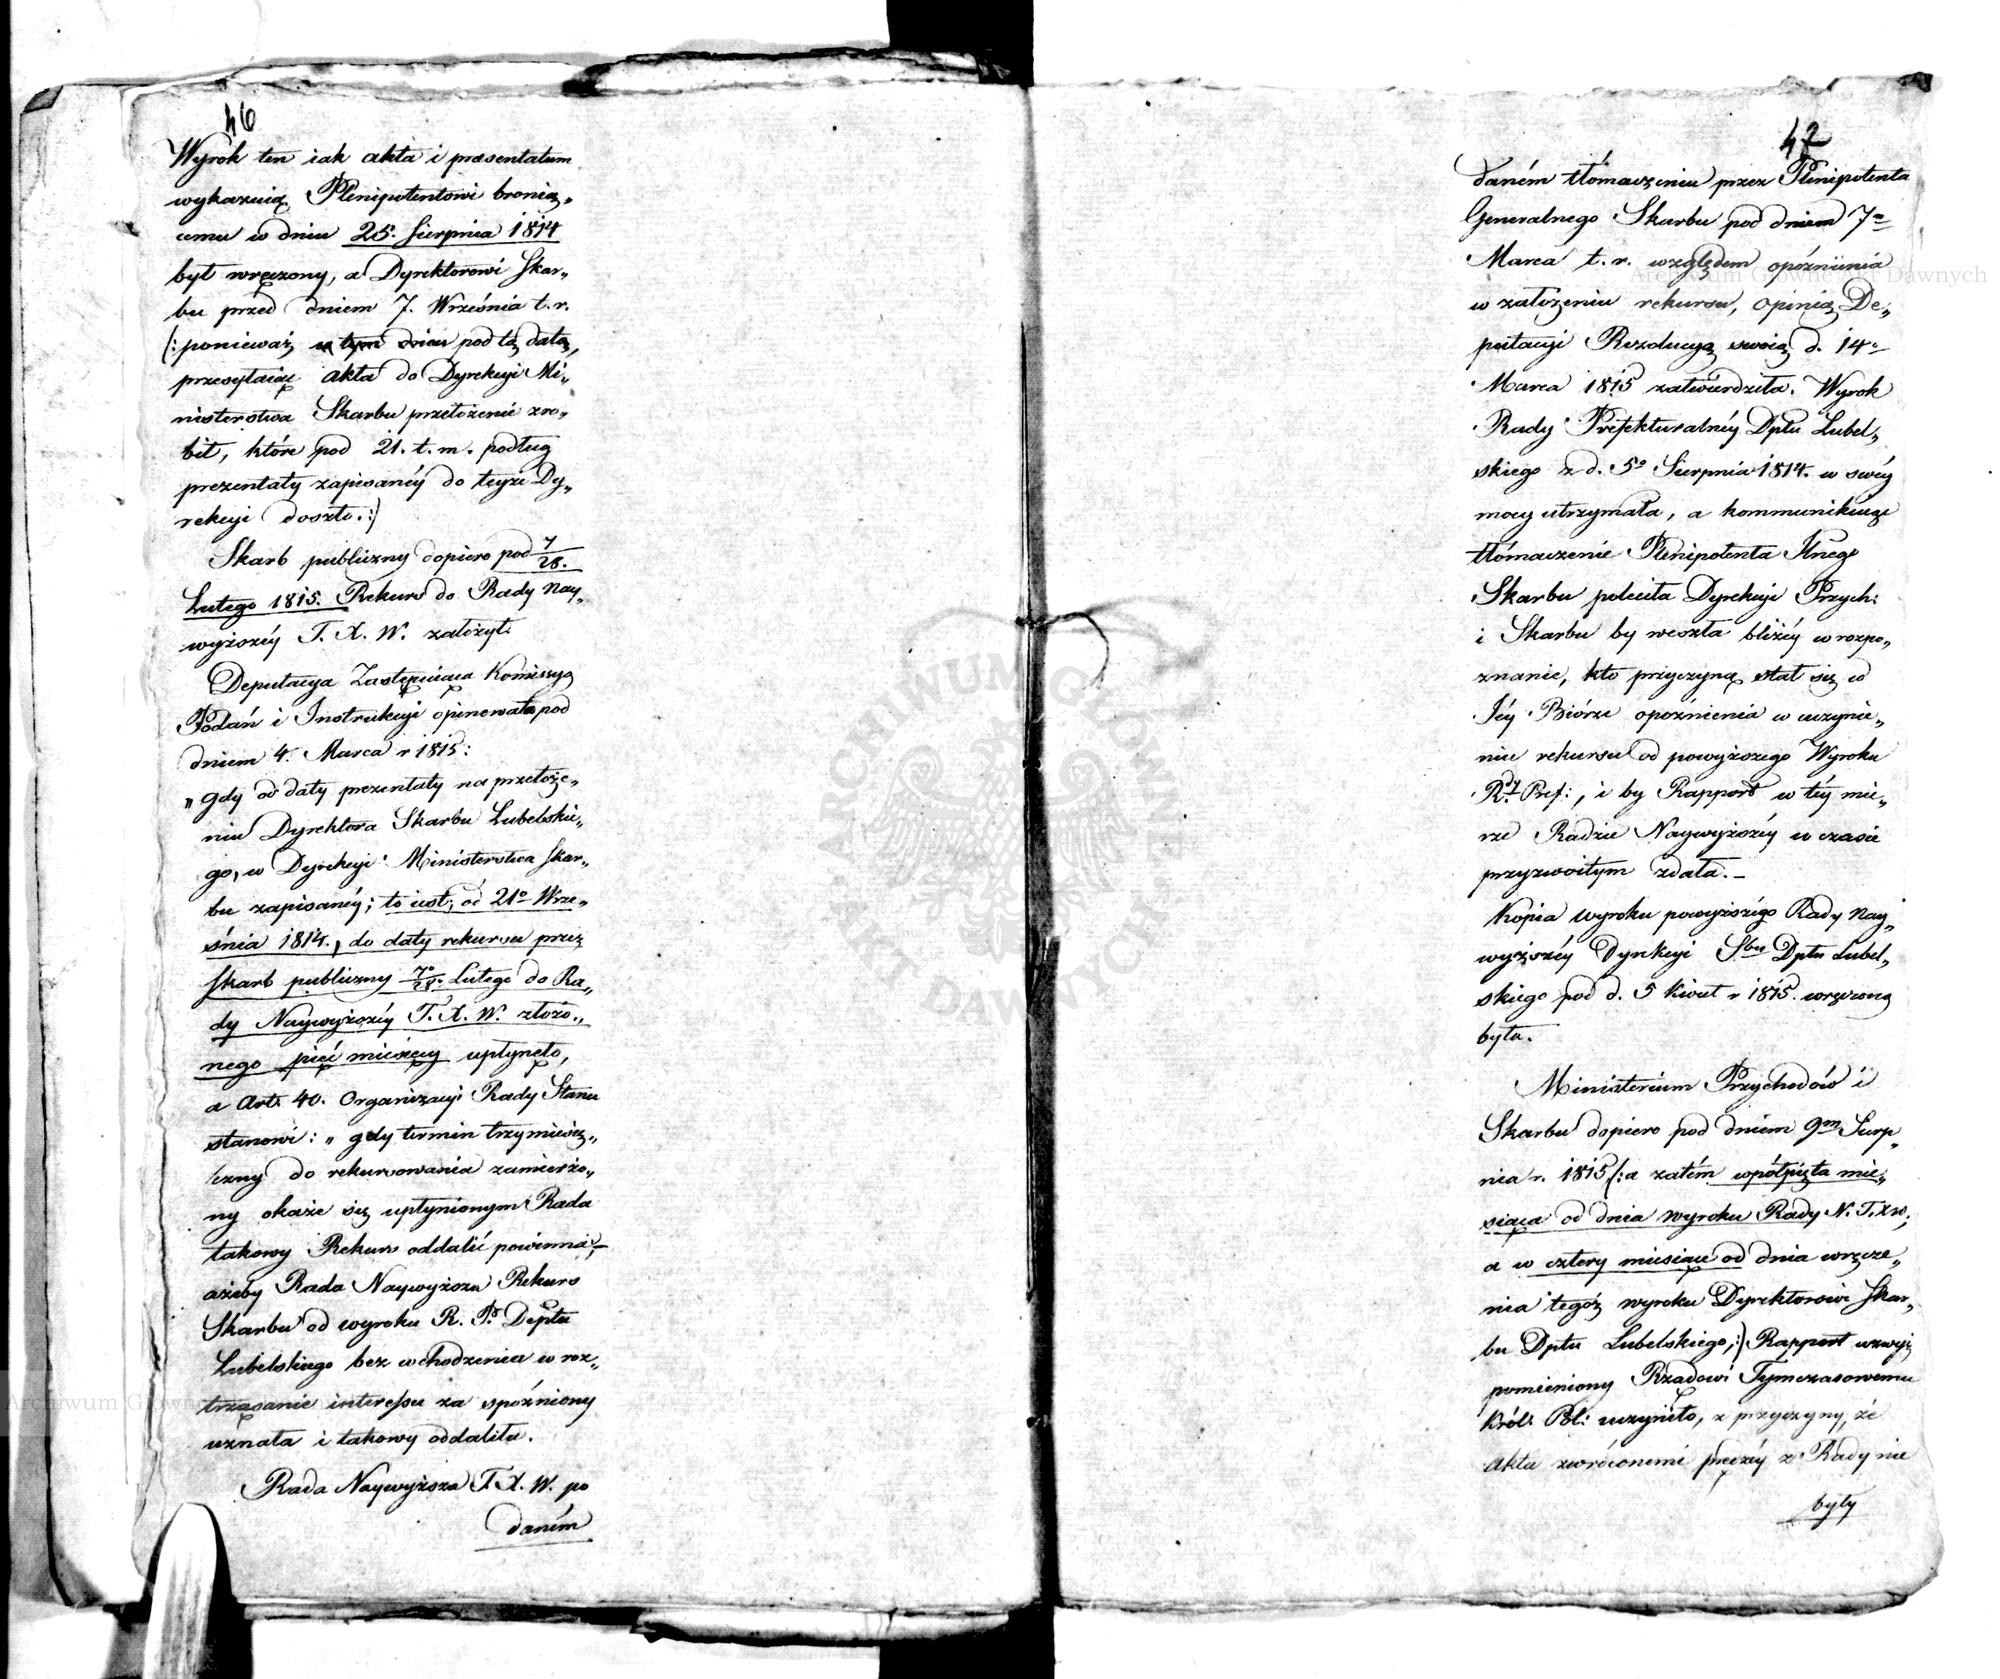 46
Wyrok ten iak akta i praesentatum
wykazuią, Plenipotentowi bronią„
cemu w dniu 25. Sierpnia 1814
był wręczony, a Dyrektorowi Skar„
bu przed dniem 7. Września t. r.
(: ponieważ w tym dniu pod tą datą,
przesyłaiąc akta do Dyrekcyi Mi„
nisterstwa Skarbu przełożenie zro„
bił, które pod 21. t. m. podług
prezentaty zapisanéy do teyże Dy„
rekcyi doszło. :)
Skarb publiczny dopiero pod 7/28.
Lutego 1815. Rekurs do Rady Nay„
wyższéy T. X. W. założył.
Deputacya Zastępuiąca Kommissyą
Podań i Instrukcyi opinowała pod
dniem 4. Marca r 1815:
„ gdy od daty prezentaty na przełoże„
niu Dyrektora Skarbu Lubelskie„
go, w Dyrekcyi Ministerstwa Skar„
bu zapisanéy; to iest, od 21º Wrze„
śnia 1814., do daty rekursu przez
Skarb publiczny 7º/28. Lutego do Ra„
dy Naywyższéy T. X. W. złożo„
nego pięć miesięcy upłynęło,
a Art. 40. Organizacyi Rady Stanu
stanowi: „ gdy termin trzymiesię„
czny do rekursowania zamierzo„
ny okaże się upłynionym Rada
takowy Rekurs oddalić powinna, –
ażeby Rada Naywyższa Rekurs
Skarbu od wyroku R. P. Deptu
Lubelskiego bez wchodzenia w roz„
trząsanie interessu za spóźniony
uznała i takowy oddaliła.
Rada Naywyższa T. X. W. po
daném
47
daném tłómaczeniu przez Plenipotenta
Generalnego Skarbu pod dniem 7m
Marca t. r. względem opóźnienia
w założeniu rekursu, opinią De„
putacyi Rezolucyą swoią d. 14º
Marca 1815 zatwierdziła. Wyrok
Rady Prefekturalnéy Dptu Lubel„
skiego z d. 5º Sierpnia 1814. w swéy
mocy utrzymała, a kommunikuiąc
tłómaczenie Plenipotenta Gnego
Skarbu poleciła Dyrekcyi Przych:
i Skarbu by weszła bliżéy w rozpo„
znanie, kto przyczyną stał się w
Jéy Biórze opoźnienia w uczynie„
niu rekursu od powyższego Wyroku
Rdy Pref:, i by Rapport w téy mie„
rze Radzie Naywyższéy w czasie
przyzwoitym zdała. –
Kopia wyroku powyższégo Rady Nay„
wyższéy Dyrekcyi Sbu Dptu Lubel„
skiego pod d. 5 Kwiet r 1815. wręczoną
była.
Ministerium Przychodów i
Skarbu dopiero pod dniem 9m Sierp„
nia r. 1815 (: a zatém wpółpięta mie„
siąca od dnia wyroku Rady N. T. XW,
a w cztery miesiące od dnia wręcze„
nia tegóż wyroku Dyrektorowi Skar„
bu Dptu Lubelskiego, :) Rapport wzwyż
pomieniony Rządowi Tymczasowemu
Król: Pol: uczyniło, z przyczyny, że
akta zwróconemi prędzéy z Rady nie
były
Archiwum Główne Akt Dawnych
Archiwum Główne
ARCHIWUM GŁÓWNE AKT DAWNYCH